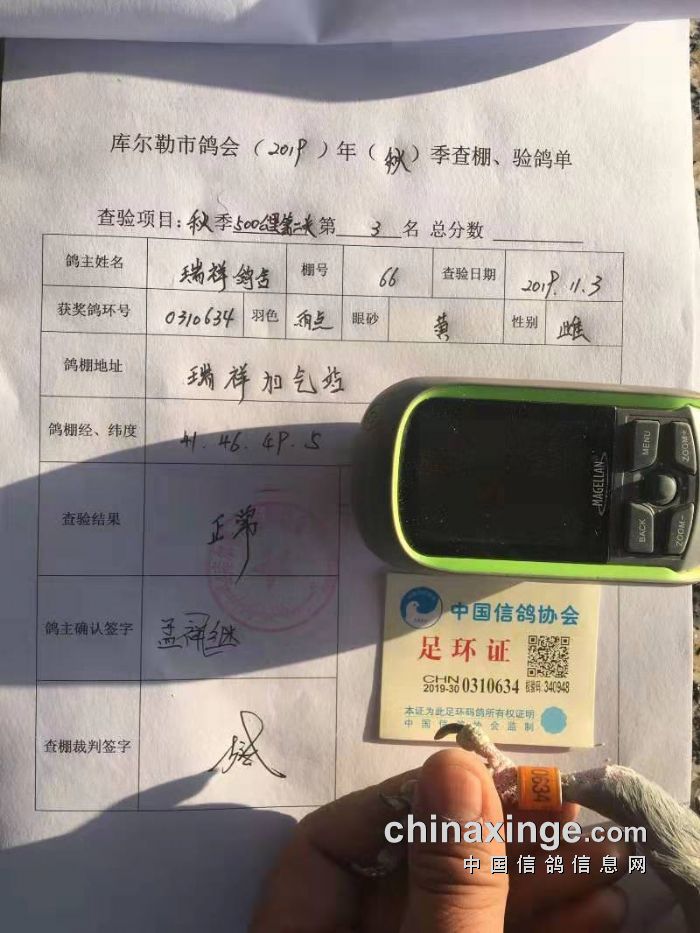 库尔勒市鸽会（2019）年（秋）季查棚、验鸽单
查验项目：秋季500公里第二关第 3 名 总分数
鸽主姓名 瑞祥鸽舍 棚号 66 查验日期 2019.11.3
获奖鸽环号 0310634 羽色 雨点 眼砂 黄 性别 雌
鸽棚地址 瑞祥加气站
鸽棚经、纬度 41.46.49.5
查验结果 正常
鸽主确认签字 孟祥继
查棚裁判签字
MAGELLAN
MENU
ZOOM+
BACK
ZOOM-
中国信鸽协会
足环证
CHN
2019-30 0310634 校验码: 340948
本证为此足环码鸽所有权证明
中国信鸽协会监制
0634
chinaxinge.com
中国信鸽信息网